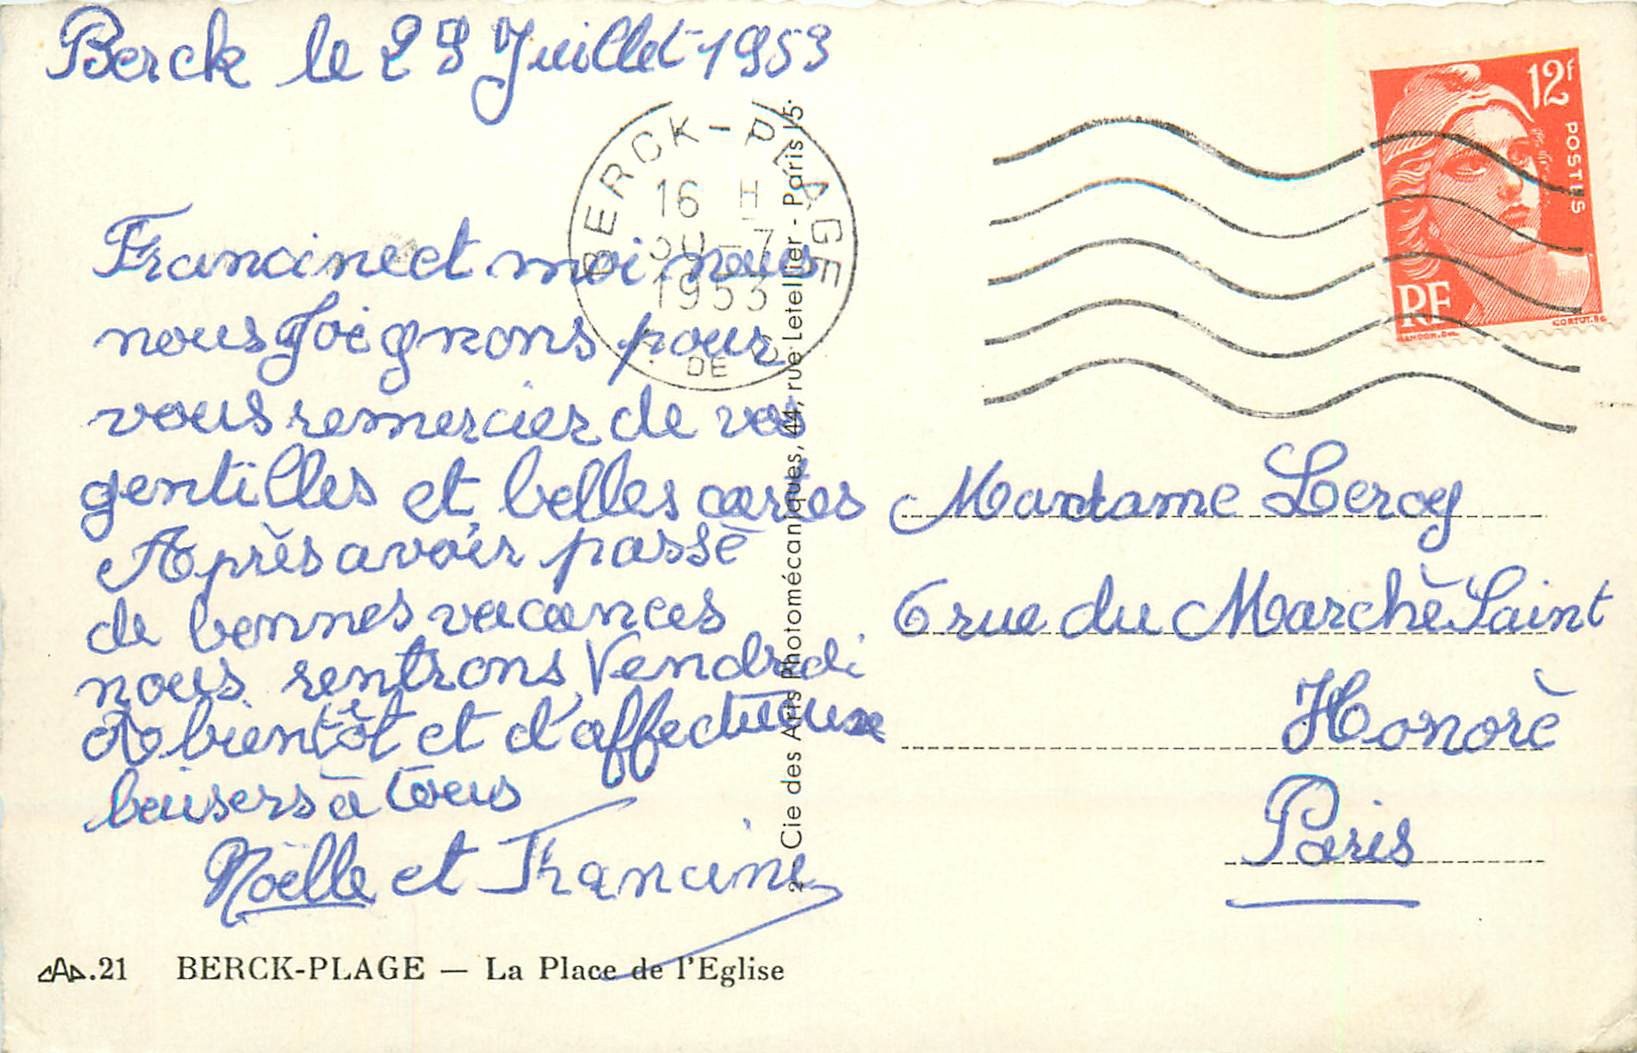 Berck le 29 Juillet 1953
Francine et moi nous
nous joignons pour
vous remercier de vos
gentilles et belles cartes
Après avoir passé
de bonnes vacances
nous rentrons Vendredi
A bientôt et d'affectueux
baisers à tous
Noëlle et Francine
BERCK-PLAGE
16 H
30-7
1953
DE
12f
POSTES
RF
GANDON.DEL
CORTOT.SC
Madame Leroy
6 rue du Marchè Saint
Honorè
Paris
2 - Cie des Arts Photomécaniques, 44, rue Letellier - Paris 15.
CAP.21 BERCK-PLAGE — La Place de l'Eglise